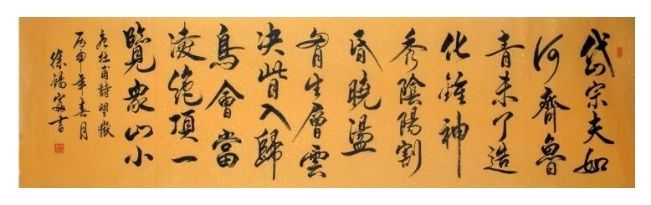 岱宗夫如
何齊魯
青未了造
化鍾神
秀陰陽割
昏曉盪
胷生層雲
決眥入歸
鳥會當
凌絕頂一
覽衆山小
杜甫詩望嶽
丙申年喜月
徐錫書